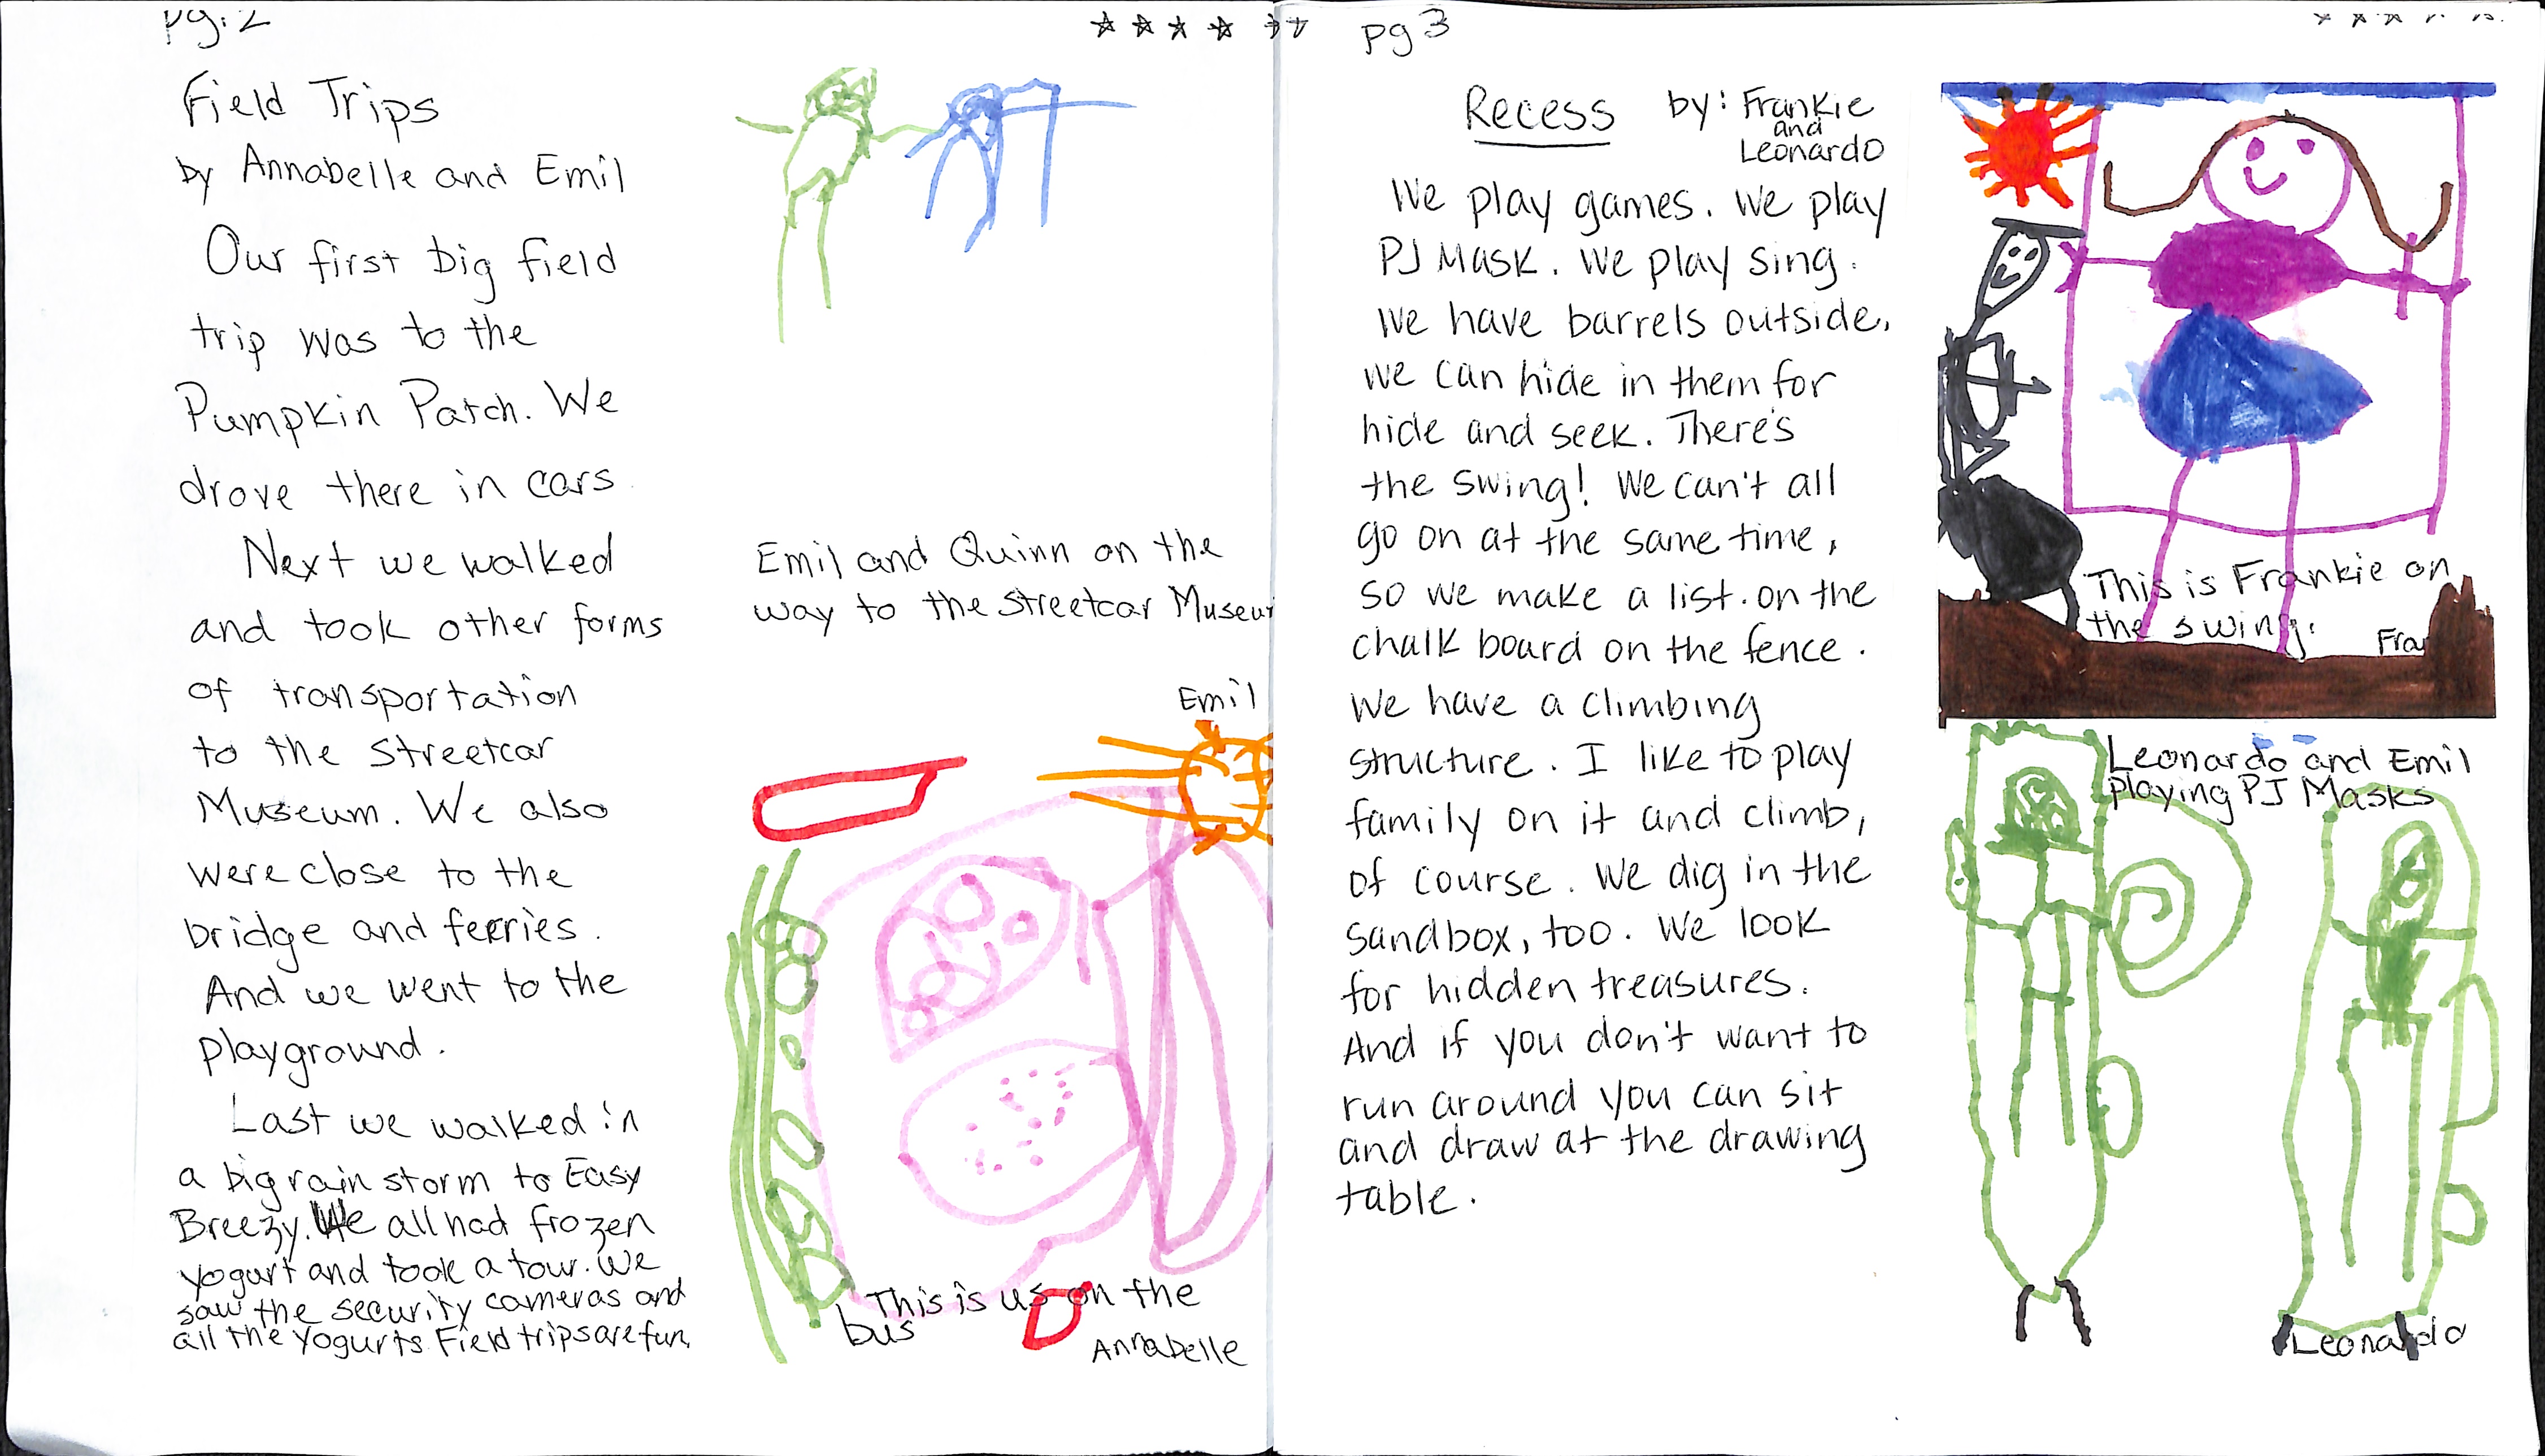 pg. 2
Field Trips
by Annabelle and Emil
Our first big field
trip was to the
Pumpkin Patch. We
drove there in cars.
Next we walked
and took other forms
of transportation
to the Streetcar
Museum. We also
were close to the
bridge and ferries.
And we went to the
playground.
Last we walked in
a big rain storm to Easy
Breezy. We all had frozen
yogurt and took a tour. We
saw the security cameras and
all the yogurts. Field trips are fun.
Emil and Quinn on the
way to the Streetcar Museu
Emil
This is us on the
bus
Annabelle
pg 3
Recess by: Frankie
and
Leonardo
We play games. We play
PJ Mask. We play sing.
We have barrels outside.
We can hide in them for
hide and seek. There's
the swing! We can't all
go on at the same time,
so we make a list. on the
chalk board on the fence.
We have a climbing
structure. I like to play
family on it and climb,
of course. We dig in the
sandbox, too. We look
for hidden treasures.
And if you don't want to
run around you can sit
and draw at the drawing
table.
This is Frankie on
the swing.
Fra
Leonardo and Emil
playing PJ Masks
Leonardo